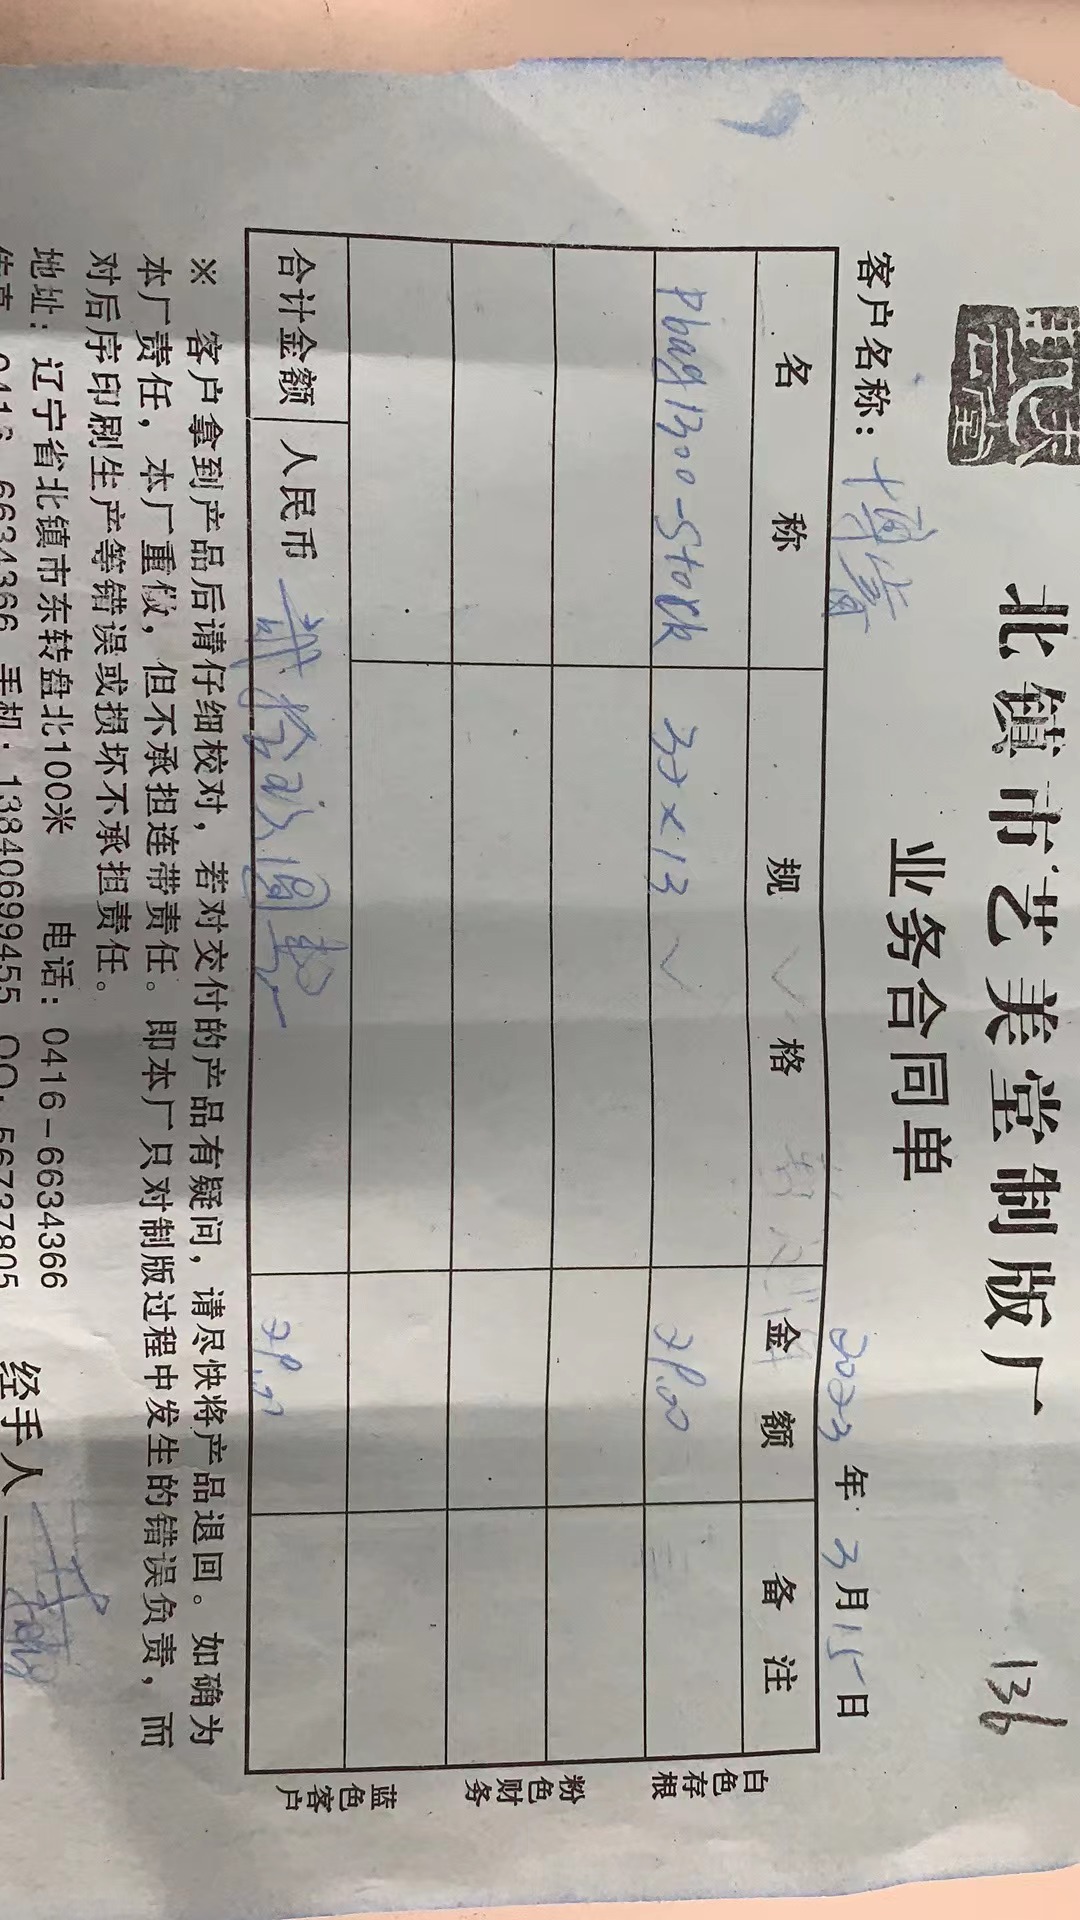 北镇市艺美堂制版厂
136
业务合同单
客户名称：博蓄 2023年3月15日
名称 规格 金额 备注
pbag1300-Stork 37×13 ✓ 78.00
合计金额 人民币 柒拾 圆整 78.00
白色存根
粉色财务
蓝色客户
※ 客户拿到产品后请仔细校对，若对交付的产品有疑问，请尽快将产品退回。如确为
本厂责任，本厂重做，但不承担连带责任。即本厂只对制版过程中发生的错误负责，而
对后序印刷生产等错误或损坏不承担责任。
地址：辽宁省北镇市东转盘北100米 电话：0416-6634366
传真：0416-6634366 手机：13840699455 QQ：56737805 经手人